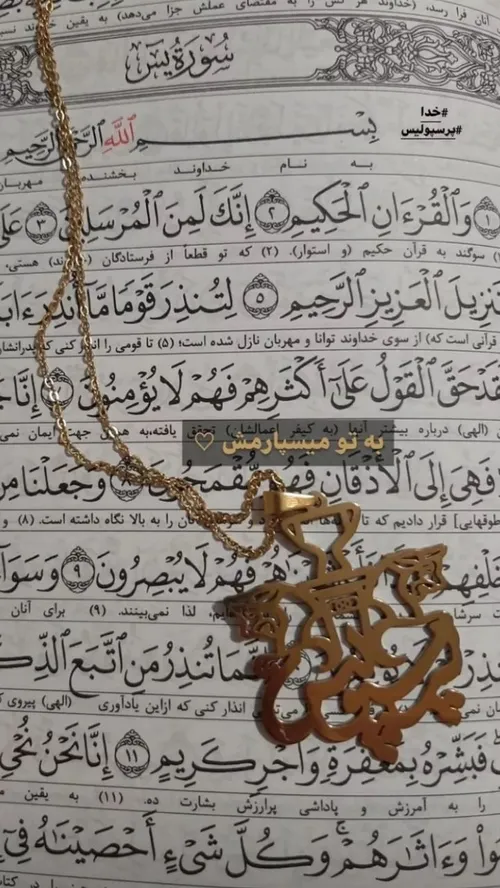 آنان فرا رسد، (خداوند هر کس را به مقتضای عملش جزا می‌دهد) به یقین
سُورَةُ يسٓ
#خدا
#پرسپولیس
بِسْمِ ٱللَّهِ ٱلرَّحْمَٰنِ ٱلرَّحِيمِ
به نام خداوند بخشنده مهربان
١ وَٱلْقُرْءَانِ ٱلْحَكِيمِ ٢ إِنَّكَ لَمِنَ ٱلْمُرْسَلِينَ ٣
سوگند به قرآن حکیم (و استوار). (۲) که تو قطعاً از فرستادگان هستی.
ٱلْعَزِيزِ ٱلرَّحِيمِ ٥ لِتُنذِرَ قَوْمًا مَّآ أُنذِرَ
قرآنی است که) از سوی خداوند توانا و مهربان نازل شده است؛ (۵) تا قومی را کنی که
حَقَّ ٱلْقَوْلُ عَلَىٰٓ أَكْثَرِهِمْ فَهُمْ لَا يُؤْمِنُونَ
(الهی) درباره بیشتر آنها (به کیفر اعمالشان) تحقق یافته،به همین جهت ایمان
به تو میسپارمش ♡
فَهِىَ إِلَى ٱلْأَذْقَانِ فَهُم مُّقْمَحُونَ ٨ وَجَعَلْنَا
قرار دادیم که تا را بالا نگاه داشته است. (۸) و
فَهُمْ لَا يُبْصِرُونَ ٩ وَسَوَآءٌ
لذا نمی‌بینند. (۹) برای آنان
إِنَّمَا تُنذِرُ مَنِ ٱتَّبَعَ
انذار کنی که ازاین یادآوری (الهی) پیروی
فَبَشِّرْهُ بِمَغْفِرَةٍ وَأَجْرٍ كَرِيمٍ ١١ إِنَّا نَحْنُ
را به آمرزش و پاداشی پرارزش بشارت ده. (۱۱) به یقین
وَءَاثَٰرَهُمْ وَكُلَّ شَىْءٍ أَحْصَيْنَٰهُ فِىٓ